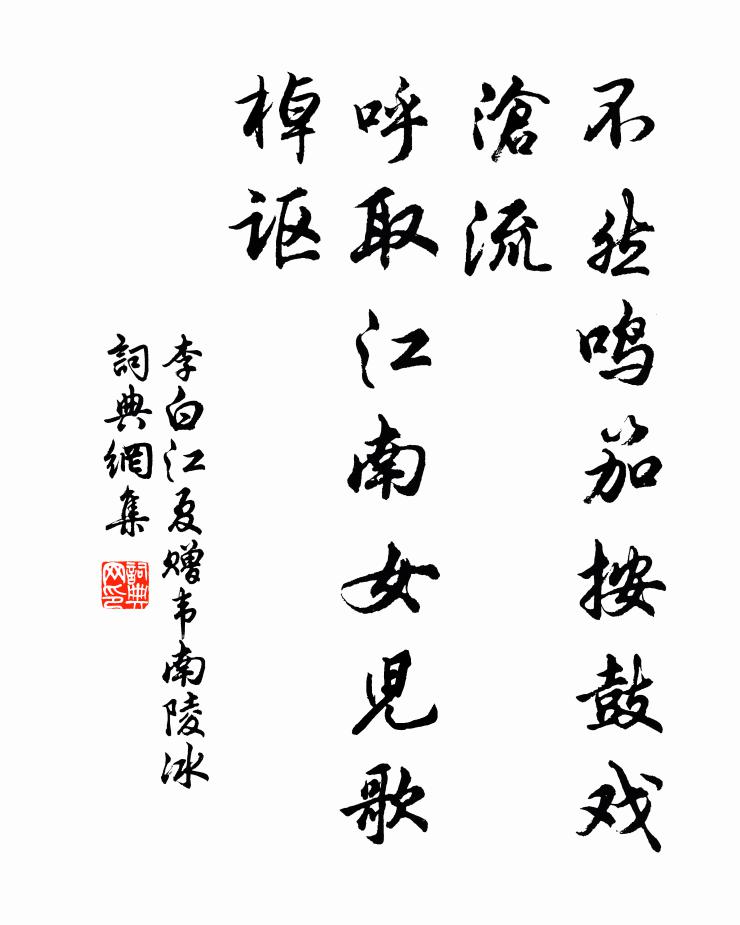 不然鸣笳按鼓戏
滄流
呼取江南女児歌
棹讴
李白江夏赠韦南陵冰
詞典網集
詞典
网印